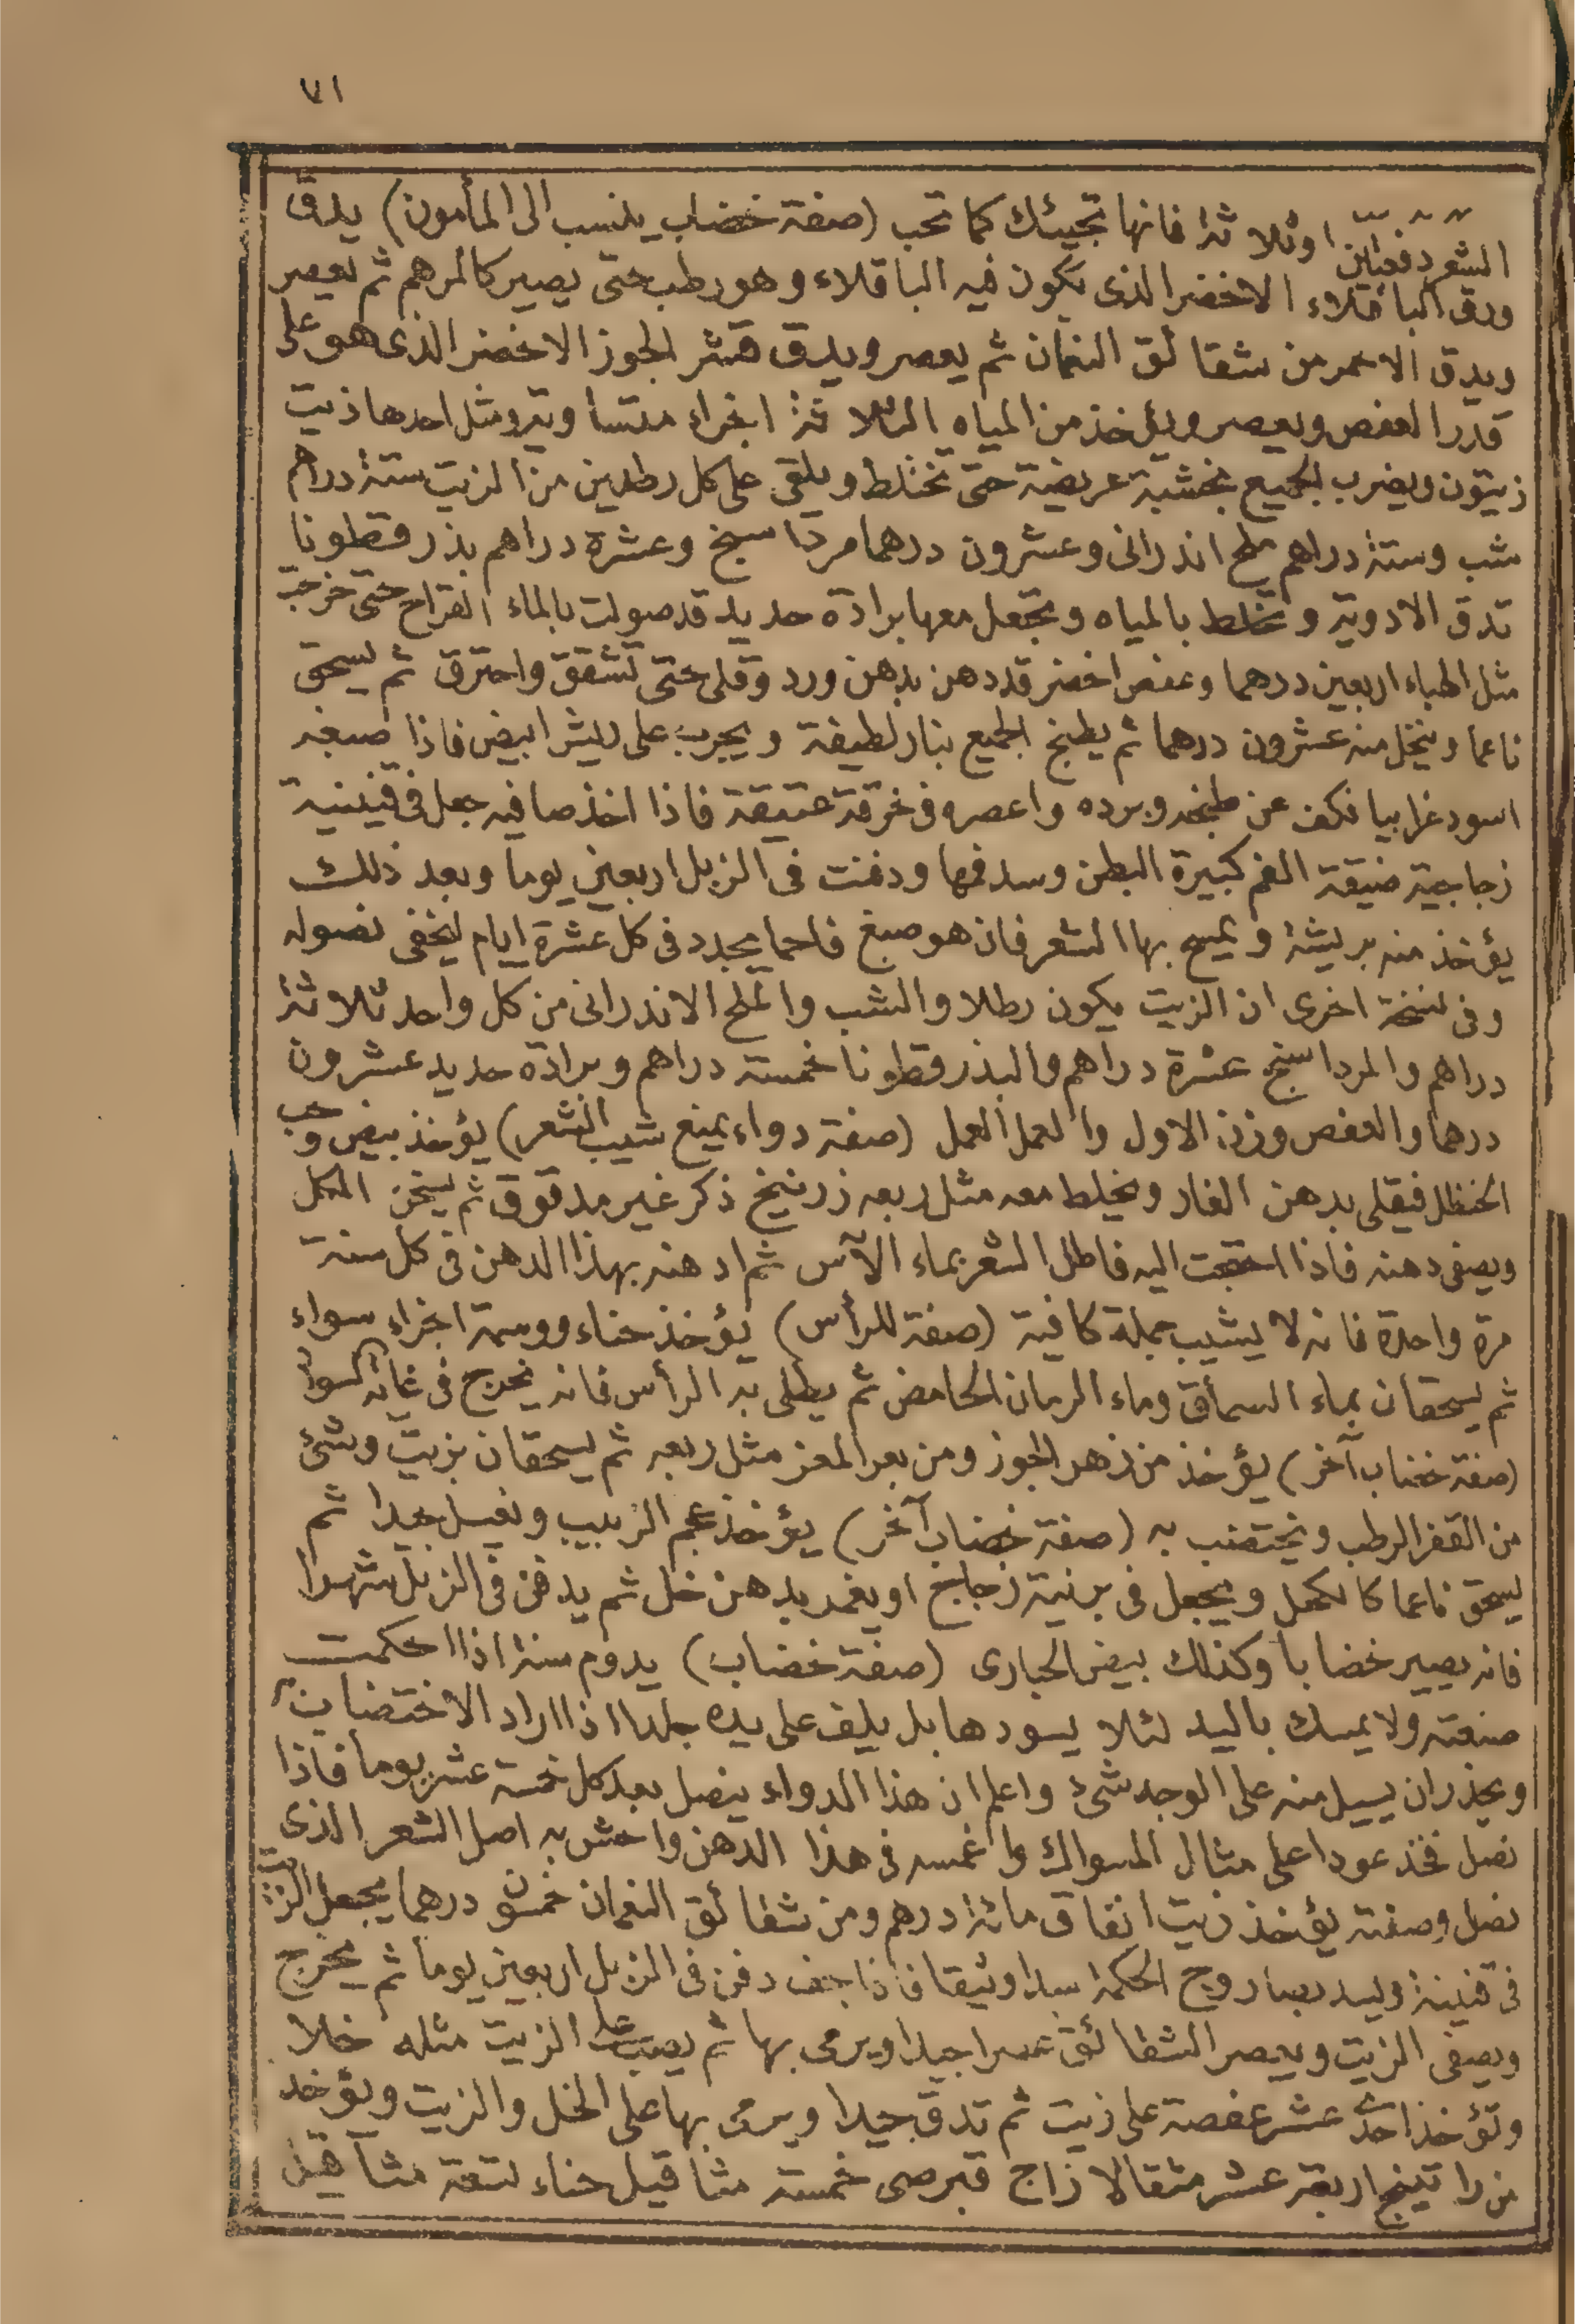 ٧١
الشعر دفعتين او ثلاثة فانها تجيئك كما تحب (صفة خضاب ينسب الى المأمون) يدق
ورق الباقلاء الاخضر الذى يكون فيه الباقلاء وهو رطب حتى يصير كالمرهم ثم يعصر
ويدق الاحمر من شقائق النعمان ثم يعصر ويدق قشر الجوز الاخضر الذى هو على
قدر العفص ويعصر ويؤخذ من المياه الثلاثة اجزاء متساوية ومثل احدها زيت
زيتون ويضرب الجميع بخشبة عريضة حتى تختلط ويلقى على كل رطلين من الزيت ستة دراهم
شب وستة دراهم ملح اندرانى وعشرون درهما مرداسنج وعشرة دراهم بذر قطونا
تدق الادوية وتخلط بالمياه وتجعل معها برادة حديد قد صولت بالماء القراح حتى خرجت
مثل الهباء اربعين درهما وعفص اخضر قد دهن بدهن ورد وقلى حتى تشقق واحترق ثم يسحق
ناعما وينخل منه عشرون درهما ثم يطبخ الجميع بنار لطيفة ويجرب على ريش ابيض فاذا صبغه
اسود غرابيا فكف عن طبخه وبرده واعصره فى خرقة عتيقة فاذا اخذ صافيه جعل فى قنينية
زجاجية ضيقة الفم كبيرة البطن وسد فمها ودفنت فى الزبل اربعين يوما وبعد ذلك
يؤخذ منه بريشة ويمسح بها الشعر فان هو صبغ فاحما يجدد فى كل عشرة ايام ليخفى نصوله
وفى نسخة اخرى ان الزيت يكون رطلا والشب والملح الاندرانى من كل واحد ثلاثة
دراهم والمرداسنج عشرة دراهم والبذر قطونا خمسة دراهم وبرادة حديد عشرون
درهما والعفص وزنه الاول والعمل العمل (صفة دواء يمنع شيب الشعر) يؤخذ بيض وحب
الحنظل فيقلى بدهن الغار ويخلط معه مثل ربعه زرنيخ ذكر غير مدقوق ثم يسخن الكل
ويصفى دهنه فاذا احتجت اليه فاطل الشعر بماء الآس ثم ادهنه بهذا الدهن فى كل سنة
مرة واحدة فانه لا يشيب جملة كافية (صفة للرأس) يؤخذ حناء ووسمة اجزاء سواء
ثم يسحقان بماء السمأق وماء الرمان الحامض ثم يطلى به الرأس فانه يخرج فى غاية السواد
(صفة خضاب آخر) يؤخذ من زهر الجوز ومن بعر المعز مثل ربعه ثم يسحقان بزيت وشئ
من القفر الرطب ويختضب به (صفة خضاب آخر) يؤخذ عجم الزبيب ويغسل جيدا ثم
يسحق ناعما كالكحل ويجعل فى برنية زجاج او يغمر بدهن خل ثم يدفن فى الزبل شهرا
فانه يصير خضابا وكذلك بيض الحبارى (صفة خضاب) يدوم سنة اذا احكمت
صنعته ولا يمسك باليد لئلا يسودها بل يلف على يده جلدا اذا اراد الاختضاب
ويحذر ان يسيل منه على الوجه شئ واعلم ان هذا الدواء ينصل بعد كل خمسة عشر يوما فاذا
نصل فخذ عودا على مثال المسواك واغمسه فى هذا الدهن واحش به اصل الشعر الذى
نصل وصفته يؤخذ زيت انفاق مائة درهم ومن شقائق النعمان خمسون درهما يجعل الزيت
فى قنينة ويسد بصاروج الحكمة سدا وثيقا فاذا جف دفن فى الزبل اربعين يوما ثم يخرج
ويصفى الزيت ويعصر الشقائق عصرا جيدا ويرمى بها ثم يصب على الزيت مثله خلا
وتؤخذ احدى عشر عفصة على زيت ثم تدق جيدا ويرمى بها على الخل والزيت ويؤخذ
من راتينج اربعة عشر مثقالا زاج قبرصى خمسة مثاقيل حناء تسعة مثاقيل